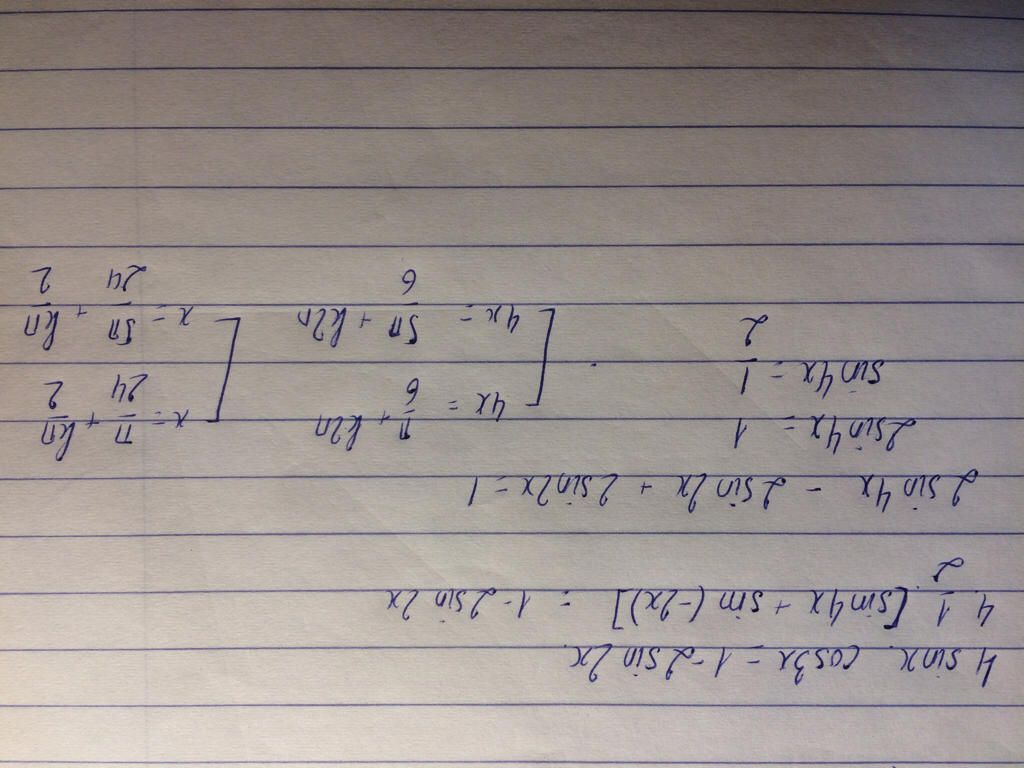 4 sinx. cos3x = 1-2sin2x.
4. 1/2 [sin4x + sin(-2x)] = 1-2sin2x
2sin4x - 2sin2x + 2sin2x = 1
2sin4x = 1
sin4x = 1/2
[ 4x = π/6 + k2π
4x = 5π/6 + k2π
[ x = π/24 + kπ/2
x = 5π/24 + kπ/2